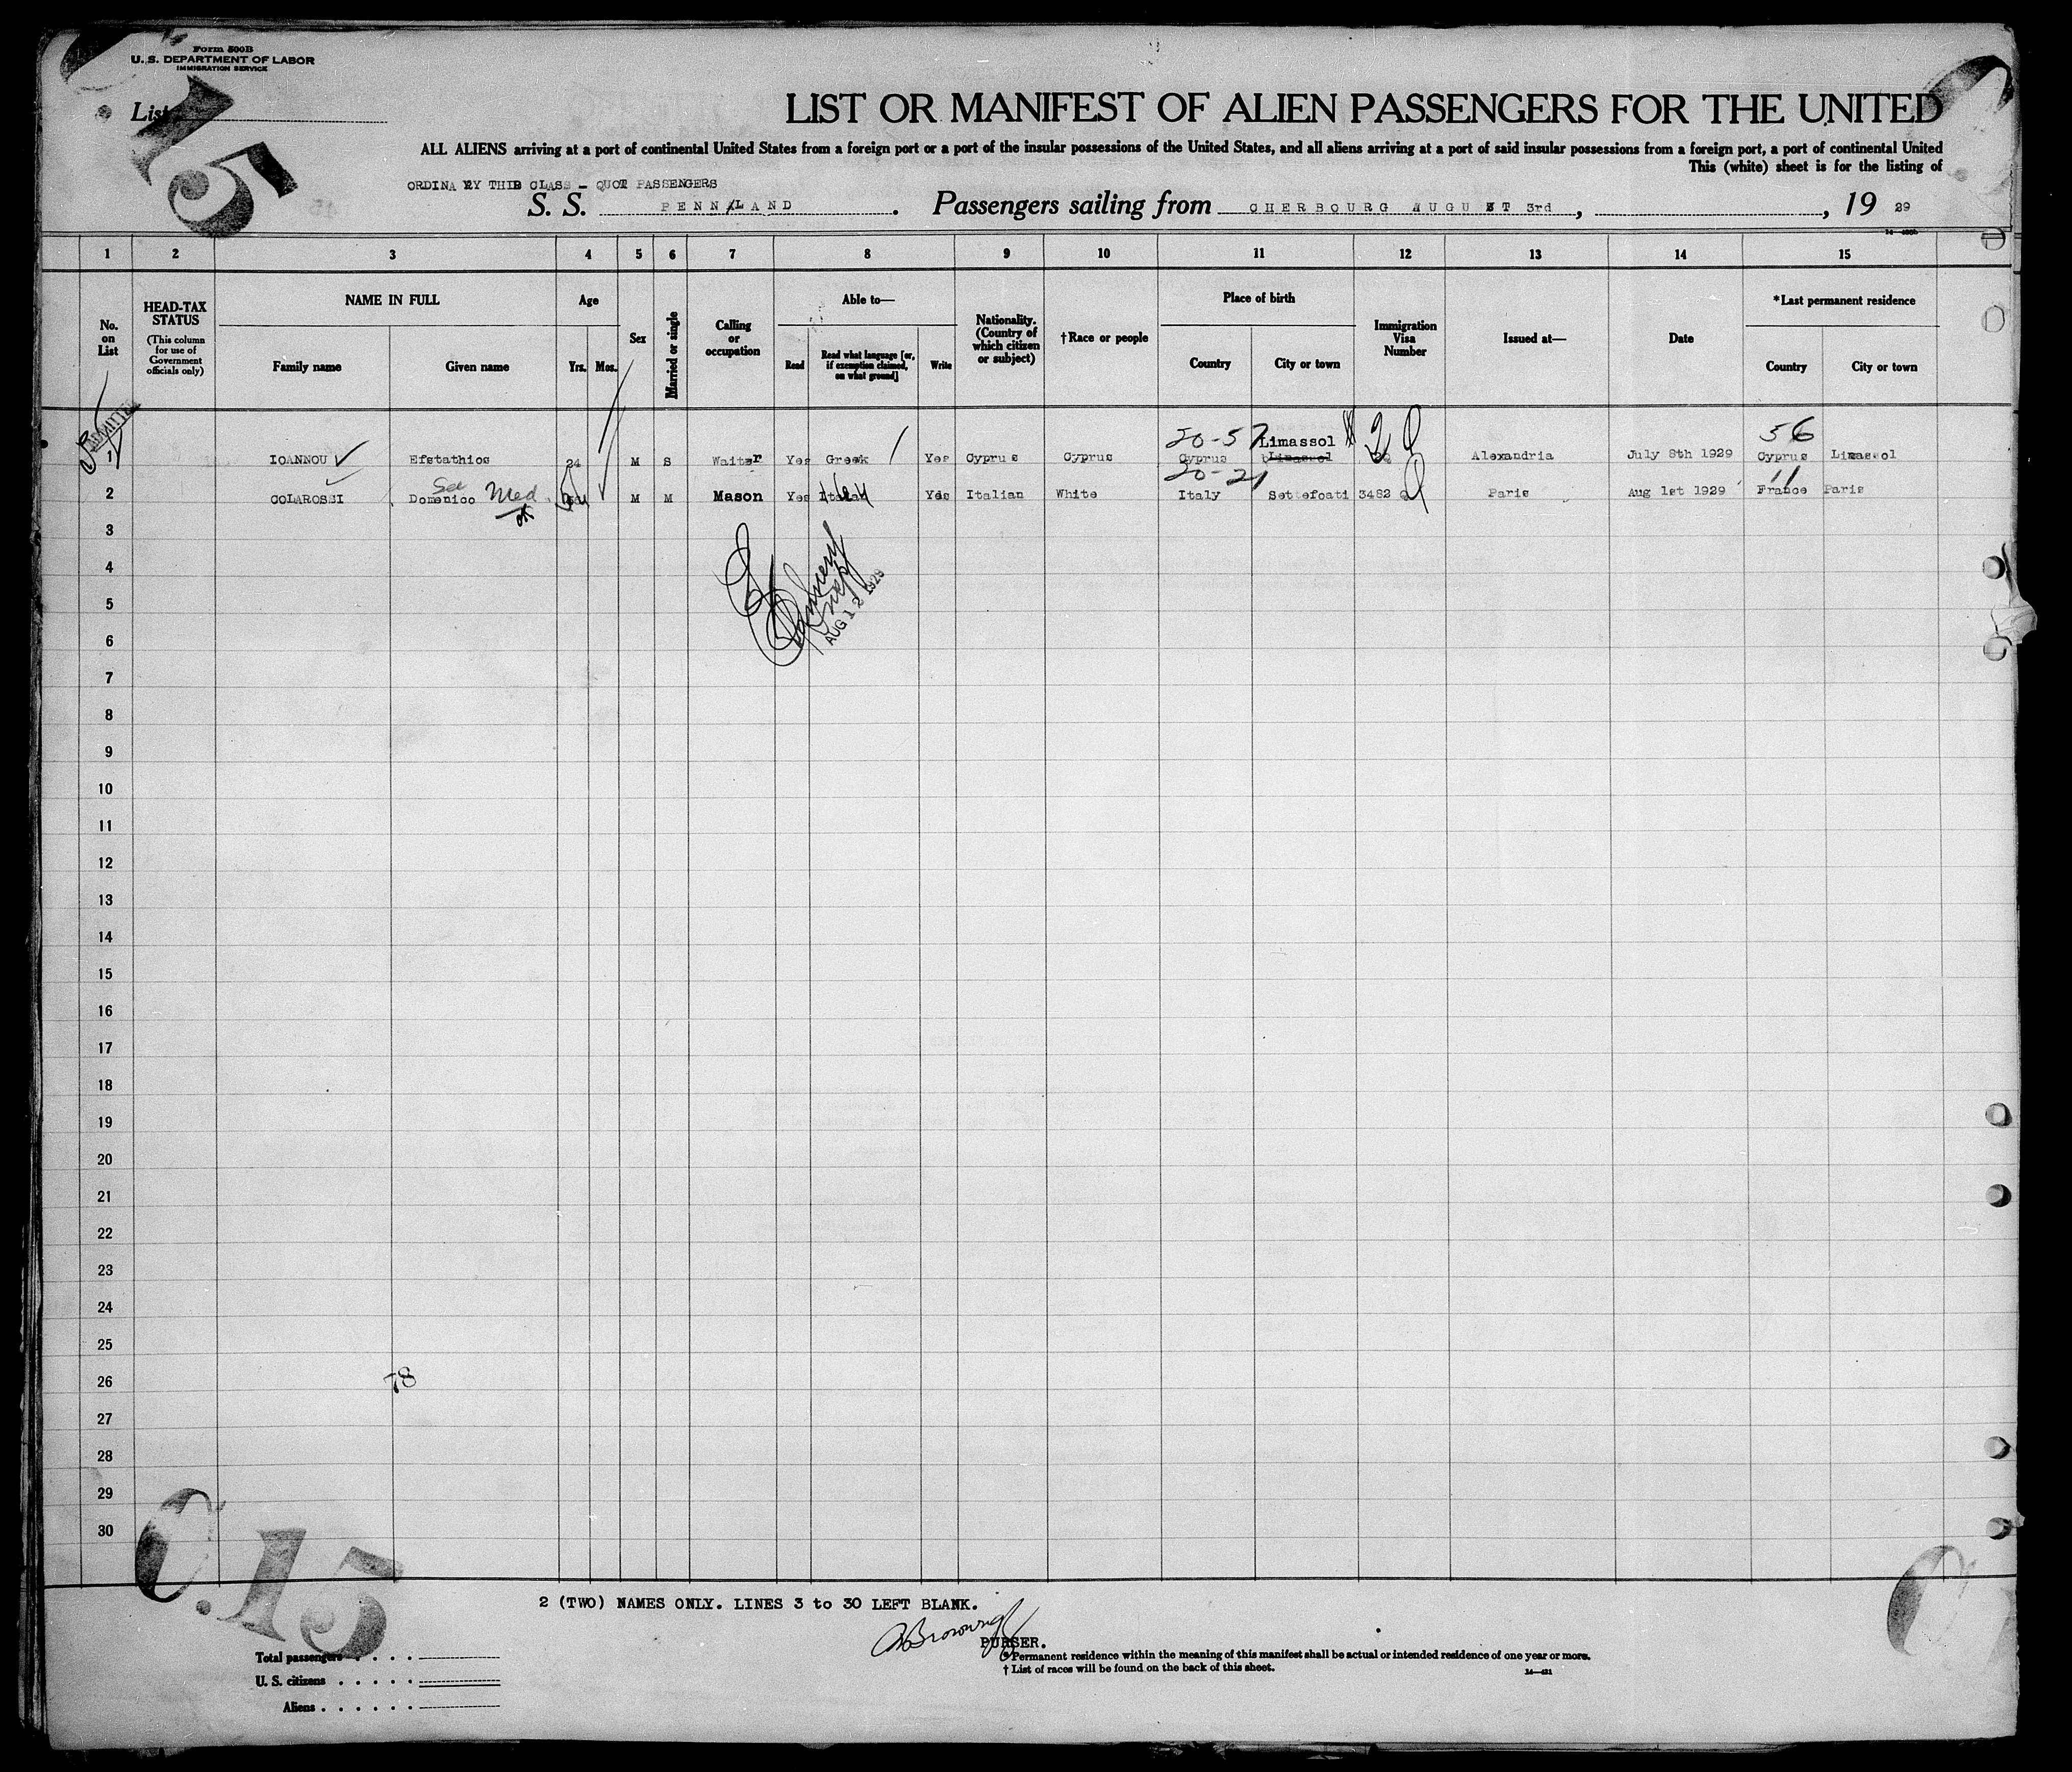 Form 500B
U. S. DEPARTMENT OF LABOR
IMMIGRATION SERVICE
List
15
LIST OR MANIFEST OF ALIEN PASSENGERS FOR THE UNITED
ALL ALIENS arriving at a port of continental United States from a foreign port or a port of the insular possessions of the United States, and all aliens arriving at a port of said insular possessions from a foreign port, a port of continental United
This (white) sheet is for the listing of
ORDINARY THIRD CLASS - QUOT PASSENGERS
S. S. PENNLAND. Passengers sailing from CHERBOURG AUGUST 3rd, , 19 29
1 2 3 4 5 6 7 8 9 10 11 12 13 14 15
No. on List
HEAD-TAX STATUS
(This column for use of Government officials only)
NAME IN FULL
Family name Given name
Age
Yrs. Mos.
Sex
Married or single
Calling or occupation
Able to—
Read Read what language [or, if exemption claimed, on what ground] Write
Nationality. (Country of which citizen or subject)
†Race or people
Place of birth
Country City or town
Immigration Visa Number
Issued at—
Date
*Last permanent residence
Country City or town
ADMITTED
20-57 Limassol 2 Q 56
1 IOANNOU Efstathios 24 M S Waiter Yes Greek Yes Cyprus Cyprus Cyprus Limassol Alexandria July 8th 1929 Cyprus Limassol
See Med ok 20-21 11
2 COLAROSSI Domenico M M Mason Yes Italian Yes Italian White Italy Settefoati 3482 Q Paris Aug 1st 1929 France Paris
3
4
5
AUG 12 1929
6
7
8
9
10
11
12
13
14
15
16
17
18
19
20
21
22
23
24
25
26
78
27
28
29
30
C.15
2 (TWO) NAMES ONLY. LINES 3 to 30 LEFT BLANK.
PURSER.
Total passengers . . . .
U. S. citizens . . . . .
Aliens . . . . . .
*Permanent residence within the meaning of this manifest shall be actual or intended residence of one year or more.
† List of races will be found on the back of this sheet.